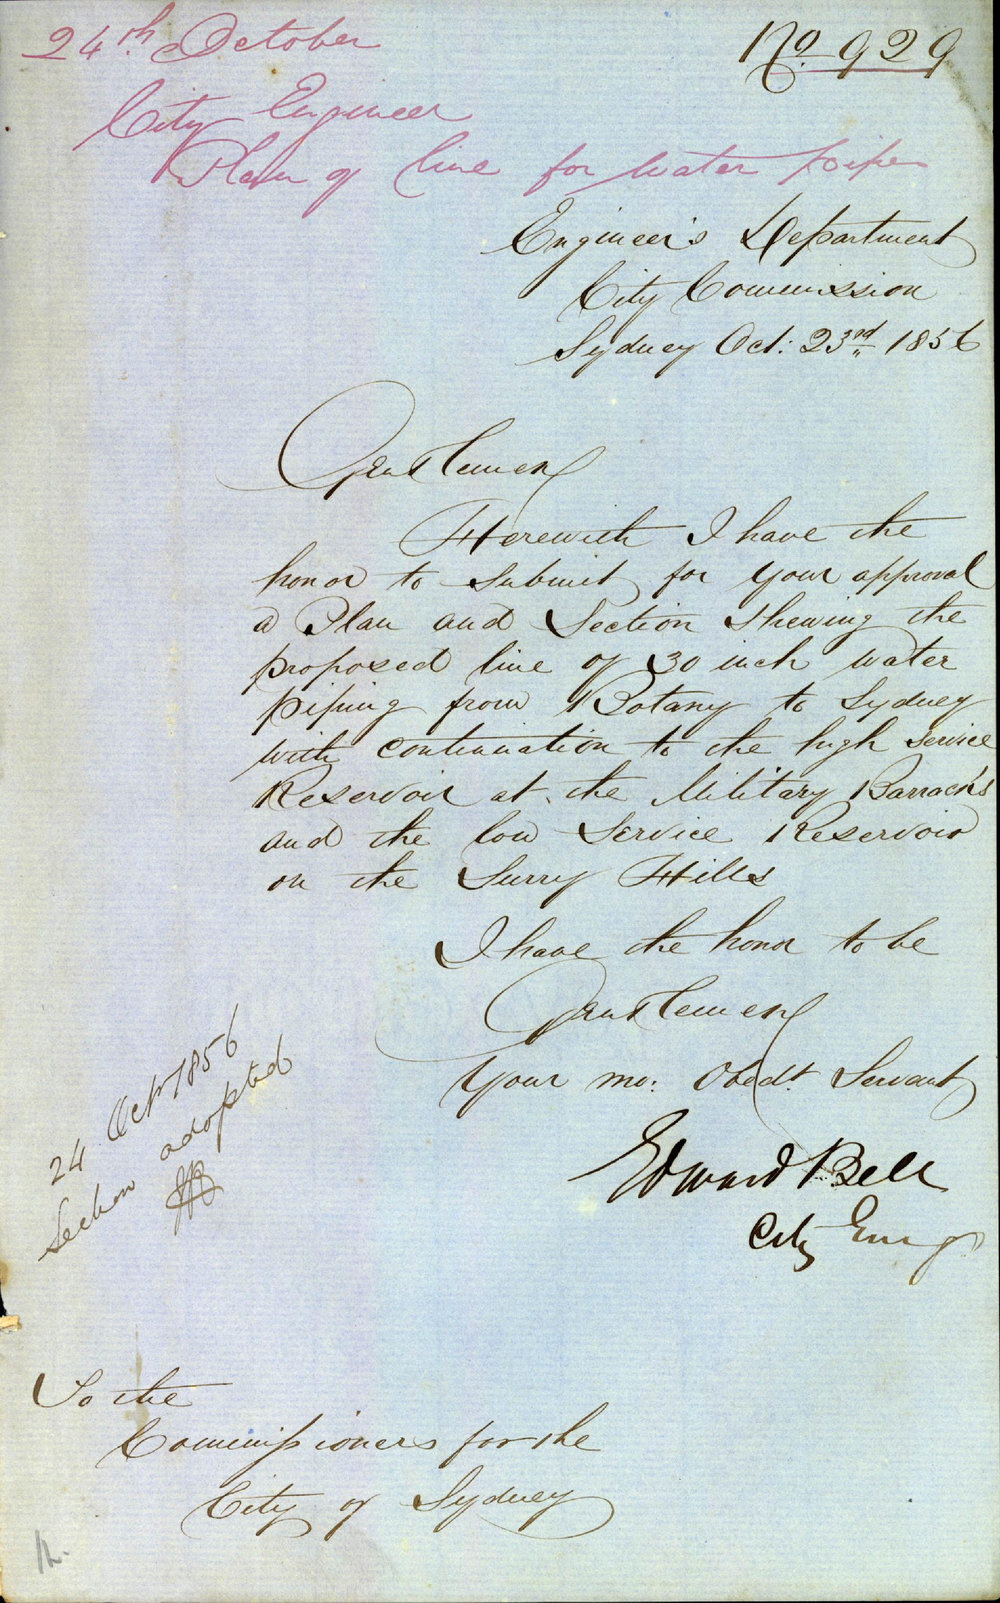 24th October
No. 929
City Engineer
Plan of line for water pipes
Engineer's Department
City Commission
Sydney Oct: 23rd 1856
Gentlemen
Herewith I have the
honor to submit for your approval
a Plan and Section shewing the
proposed line of 30 inch water
piping from Botany to Sydney
with continuation to the high service
Reservoir at the Military Barracks
and the low Service Reservoir
on the Surry Hills
I have the honor to be
Gentlemen
Your mo: Obedt. Servant
Edward Bell
City Engr
24 Octr 1856
Section adopted
To the
Commissioners for the
City of Sydney